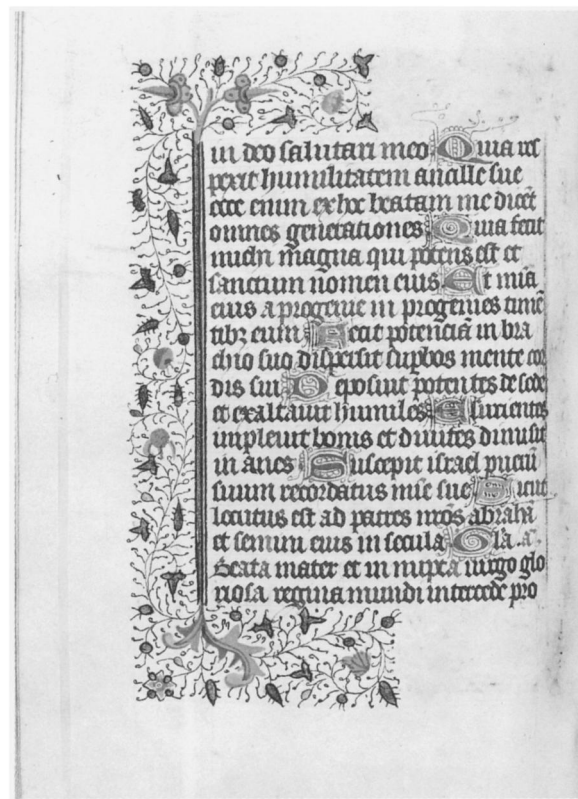 in deo salutari meo Quia res
pexit humilitatem ancille sue
ecce enim ex hoc beatam me dicet
omnes generationes Quia fecit
michi magna qui potens est et
sanctum nomen eius Et mia
eius a progenie in progenies timē
tibz eum Fecit potenciā in bra
chio suo dispersit supbos mente cor
dis sui Deposuit potentes de sede
et exaltauit humiles Esurientes
impleuit bonis et diuites dimisit
in anes Suscepit israel puerū
suum recordatus mīse sue Sicut
locutus est ad patres nrōs abrahā
et semini eius in secula Gla a
Beata mater et in nupta uirgo glo
riosa regina mundi intercede pro